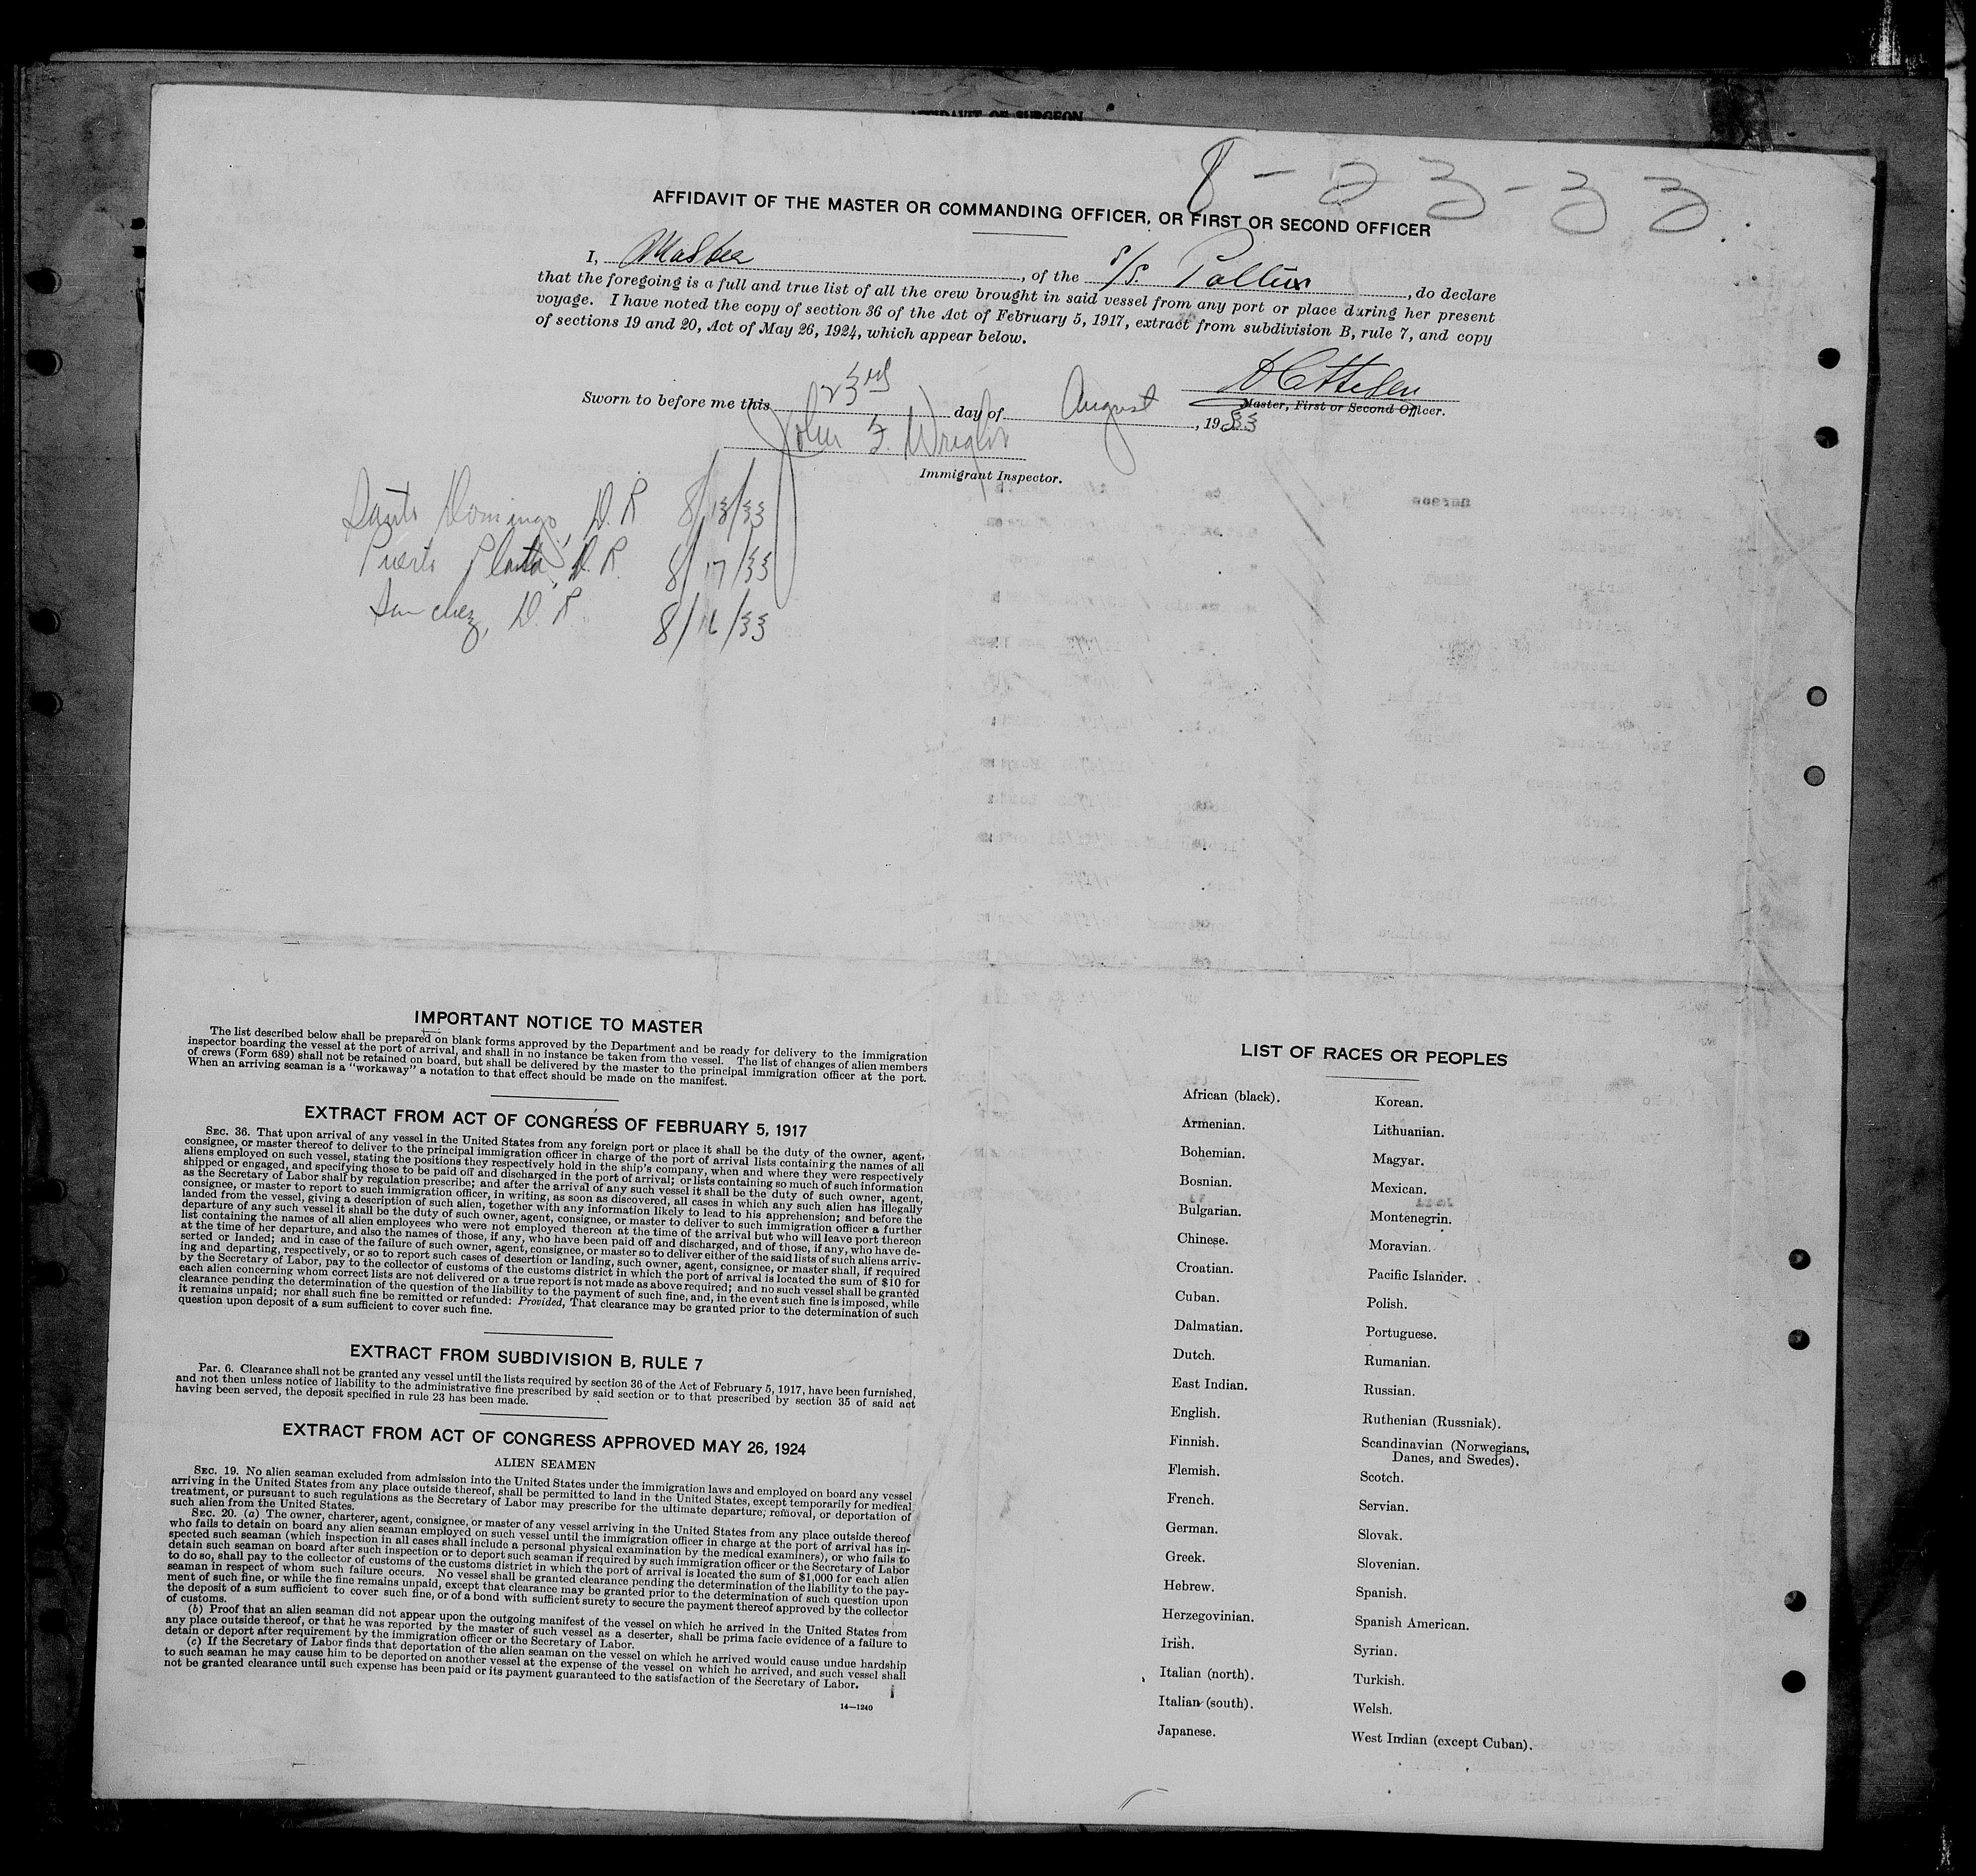 AFFIDAVIT OF SURGEON
8-23-33
AFFIDAVIT OF THE MASTER OR COMMANDING OFFICER, OR FIRST OR SECOND OFFICER
I, Master, of the S/S. Pollux, do declare
that the foregoing is a full and true list of all the crew brought in said vessel from any port or place during her present
voyage. I have noted the copy of section 36 of the Act of February 5, 1917, extract from subdivision B, rule 7, and copy
of sections 19 and 20, Act of May 26, 1924, which appear below.
Master, First or Second Officer.
Sworn to before me this 23rd day of August, 1933
John F. Wright
Immigrant Inspector.
Santo Domingo, D.R 8/18/33
Puerto Plata, D.R. 8/17/33
Sanchez, D.R 8/16/33
IMPORTANT NOTICE TO MASTER
The list described below shall be prepared on blank forms approved by the Department and be ready for delivery to the immigration
inspector boarding the vessel at the port of arrival, and shall in no instance be taken from the vessel. The list of changes of alien members
of crews (Form 689) shall not be retained on board, but shall be delivered by the master to the principal immigration officer at the port.
When an arriving seaman is a "workaway" a notation to that effect should be made on the manifest.
EXTRACT FROM ACT OF CONGRESS OF FEBRUARY 5, 1917
SEC. 36. That upon arrival of any vessel in the United States from any foreign port or place it shall be the duty of the owner, agent,
consignee, or master thereof to deliver to the principal immigration officer in charge of the port of arrival lists containing the names of all
aliens employed on such vessel, stating the positions they respectively hold in the ship's company, when and where they were respectively
shipped or engaged, and specifying those to be paid off and discharged in the port of arrival; or lists containing so much of such information
as the Secretary of Labor shall by regulation prescribe; and after the arrival of any such vessel it shall be the duty of such owner, agent,
consignee, or master to report to such immigration officer, in writing, as soon as discovered, all cases in which any such alien has illegally
landed from the vessel, giving a description of such alien, together with any information likely to lead to his apprehension; and before the
departure of any such vessel it shall be the duty of such owner, agent, consignee, or master to deliver to such immigration officer a further
list containing the names of all alien employees who were not employed thereon at the time of the arrival but who will leave port thereon
at the time of her departure, and also the names of those, if any, who have been paid off and discharged, and of those, if any, who have de-
serted or landed; and in case of the failure of such owner, agent, consignee, or master so to deliver either of the said lists of such aliens arriv-
ing and departing, respectively, or so to report such cases of desertion or landing, such owner, agent, consignee, or master shall, if required
by the Secretary of Labor, pay to the collector of customs of the customs district in which the port of arrival is located the sum of $10 for
each alien concerning whom correct lists are not delivered or a true report is not made as above required; and no such vessel shall be granted
clearance pending the determination of the question of the liability to the payment of such fine, and, in the event such fine is imposed, while
it remains unpaid; nor shall such fine be remitted or refunded: Provided, That clearance may be granted prior to the determination of such
question upon deposit of a sum sufficient to cover such fine.
EXTRACT FROM SUBDIVISION B, RULE 7
Par. 6. Clearance shall not be granted any vessel until the lists required by section 36 of the Act of February 5, 1917, have been furnished,
and not then unless notice of liability to the administrative fine prescribed by said section or to that prescribed by section 35 of said act
having been served, the deposit specified in rule 23 has been made.
EXTRACT FROM ACT OF CONGRESS APPROVED MAY 26, 1924
ALIEN SEAMEN
SEC. 19. No alien seaman excluded from admission into the United States under the immigration laws and employed on board any vessel
arriving in the United States from any place outside thereof, shall be permitted to land in the United States, except temporarily for medical
treatment, or pursuant to such regulations as the Secretary of Labor may prescribe for the ultimate departure, removal, or deportation of
such alien from the United States.
SEC. 20. (a) The owner, charterer, agent, consignee, or master of any vessel arriving in the United States from any place outside thereof
who fails to detain on board any alien seaman employed on such vessel until the immigration officer in charge at the port of arrival has in-
spected such seaman (which inspection in all cases shall include a personal physical examination by the medical examiners), or who fails to
detain such seaman on board after such inspection or to deport such seaman if required by such immigration officer or the Secretary of Labor
to do so, shall pay to the collector of customs of the customs district in which the port of arrival is located the sum of $1,000 for each alien
seaman in respect of whom such failure occurs. No vessel shall be granted clearance pending the determination of the liability to the pay-
ment of such fine, or while the fine remains unpaid, except that clearance may be granted prior to the determination of such question upon
the deposit of a sum sufficient to cover such fine, or of a bond with sufficient surety to secure the payment thereof approved by the collector
of customs.
(b) Proof that an alien seaman did not appear upon the outgoing manifest of the vessel on which he arrived in the United States from
any place outside thereof, or that he was reported by the master of such vessel as a deserter, shall be prima facie evidence of a failure to
detain or deport after requirement by the immigration officer or the Secretary of Labor.
(c) If the Secretary of Labor finds that deportation of the alien seaman on the vessel on which he arrived would cause undue hardship
to such seaman he may cause him to be deported on another vessel at the expense of the vessel on which he arrived, and such vessel shall
not be granted clearance until such expense has been paid or its payment guaranteed to the satisfaction of the Secretary of Labor.
14—1240
LIST OF RACES OR PEOPLES
African (black).
Armenian.
Bohemian.
Bosnian.
Bulgarian.
Chinese.
Croatian.
Cuban.
Dalmatian.
Dutch.
East Indian.
English.
Finnish.
Flemish.
French.
German.
Greek.
Hebrew.
Herzegovinian.
Irish.
Italian (north).
Italian (south).
Japanese.
Korean.
Lithuanian.
Magyar.
Mexican.
Montenegrin.
Moravian.
Pacific Islander.
Polish.
Portuguese.
Rumanian.
Russian.
Ruthenian (Russniak).
Scandinavian (Norwegians,
Danes, and Swedes).
Scotch.
Servian.
Slovak.
Slovenian.
Spanish.
Spanish American.
Syrian.
Turkish.
Welsh.
West Indian (except Cuban).